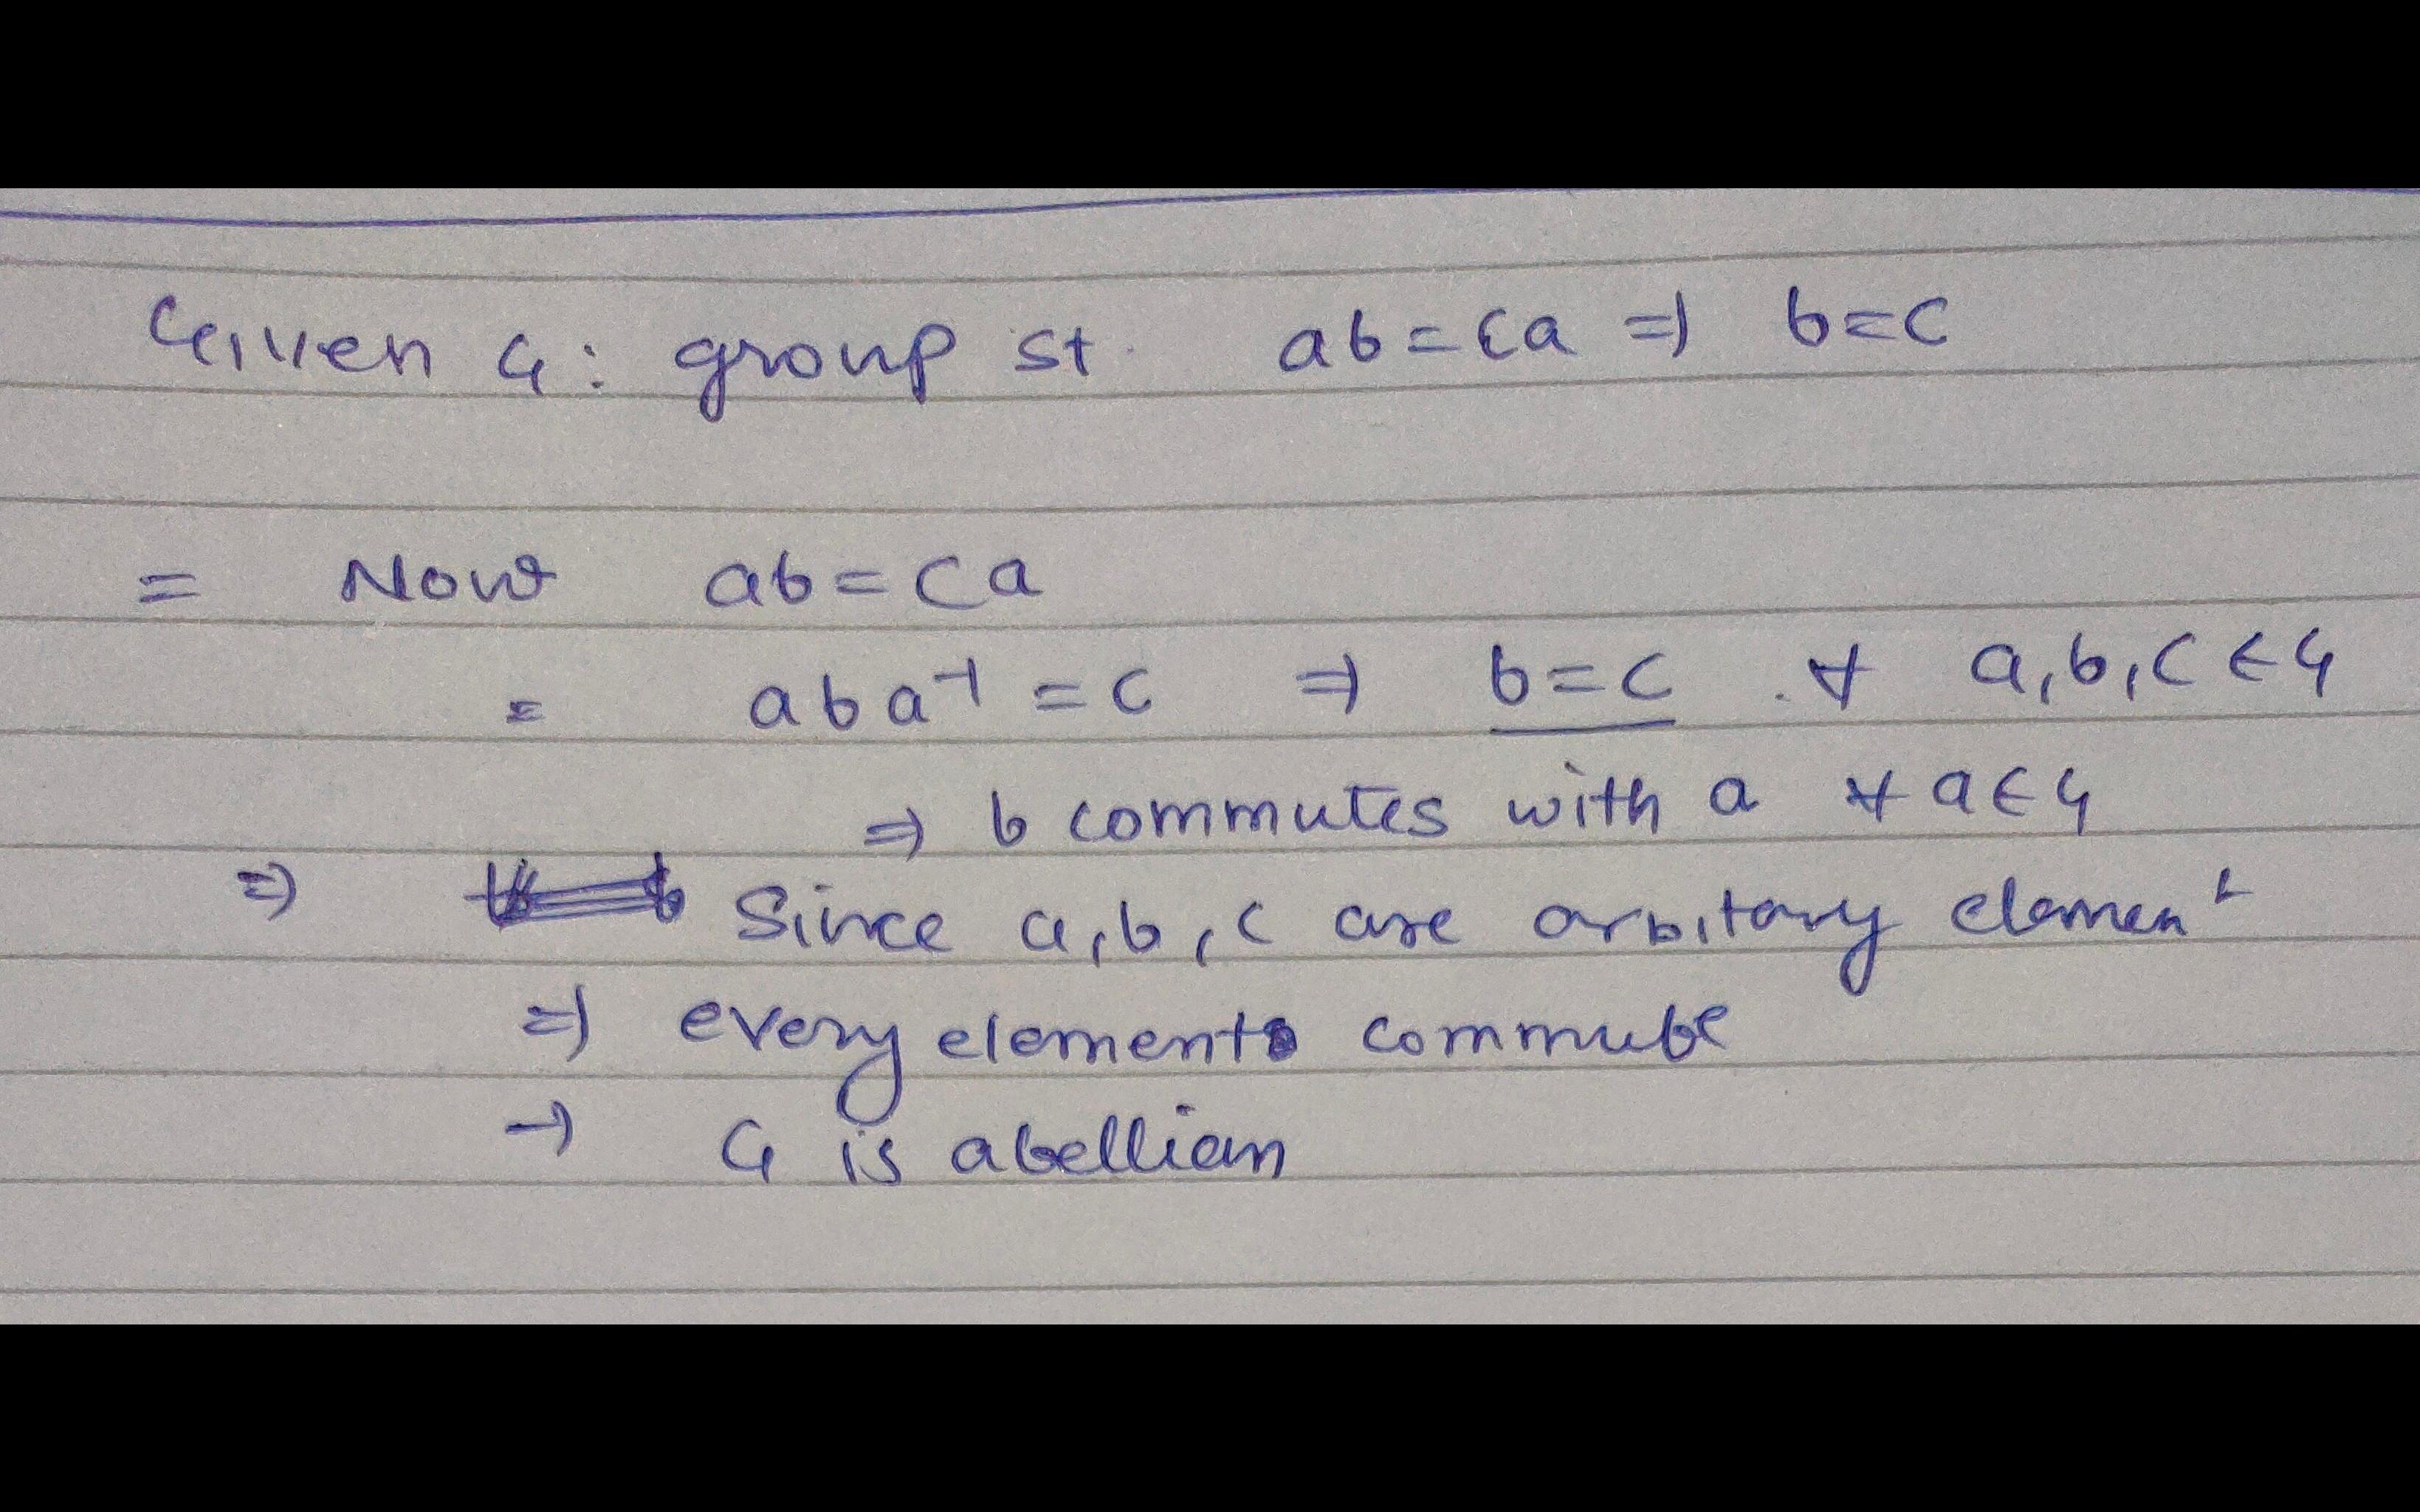 Given G: group st. ab=ca ⇒ b=c
= Now ab=ca
= aba⁻¹=c ⇒ b=c . ∀ a,b,c∈G
⇒ b commutes with a ∀ a∈G
⇒ Since a,b,c are arbitary element
⇒ every elements commute
→ G is abellian